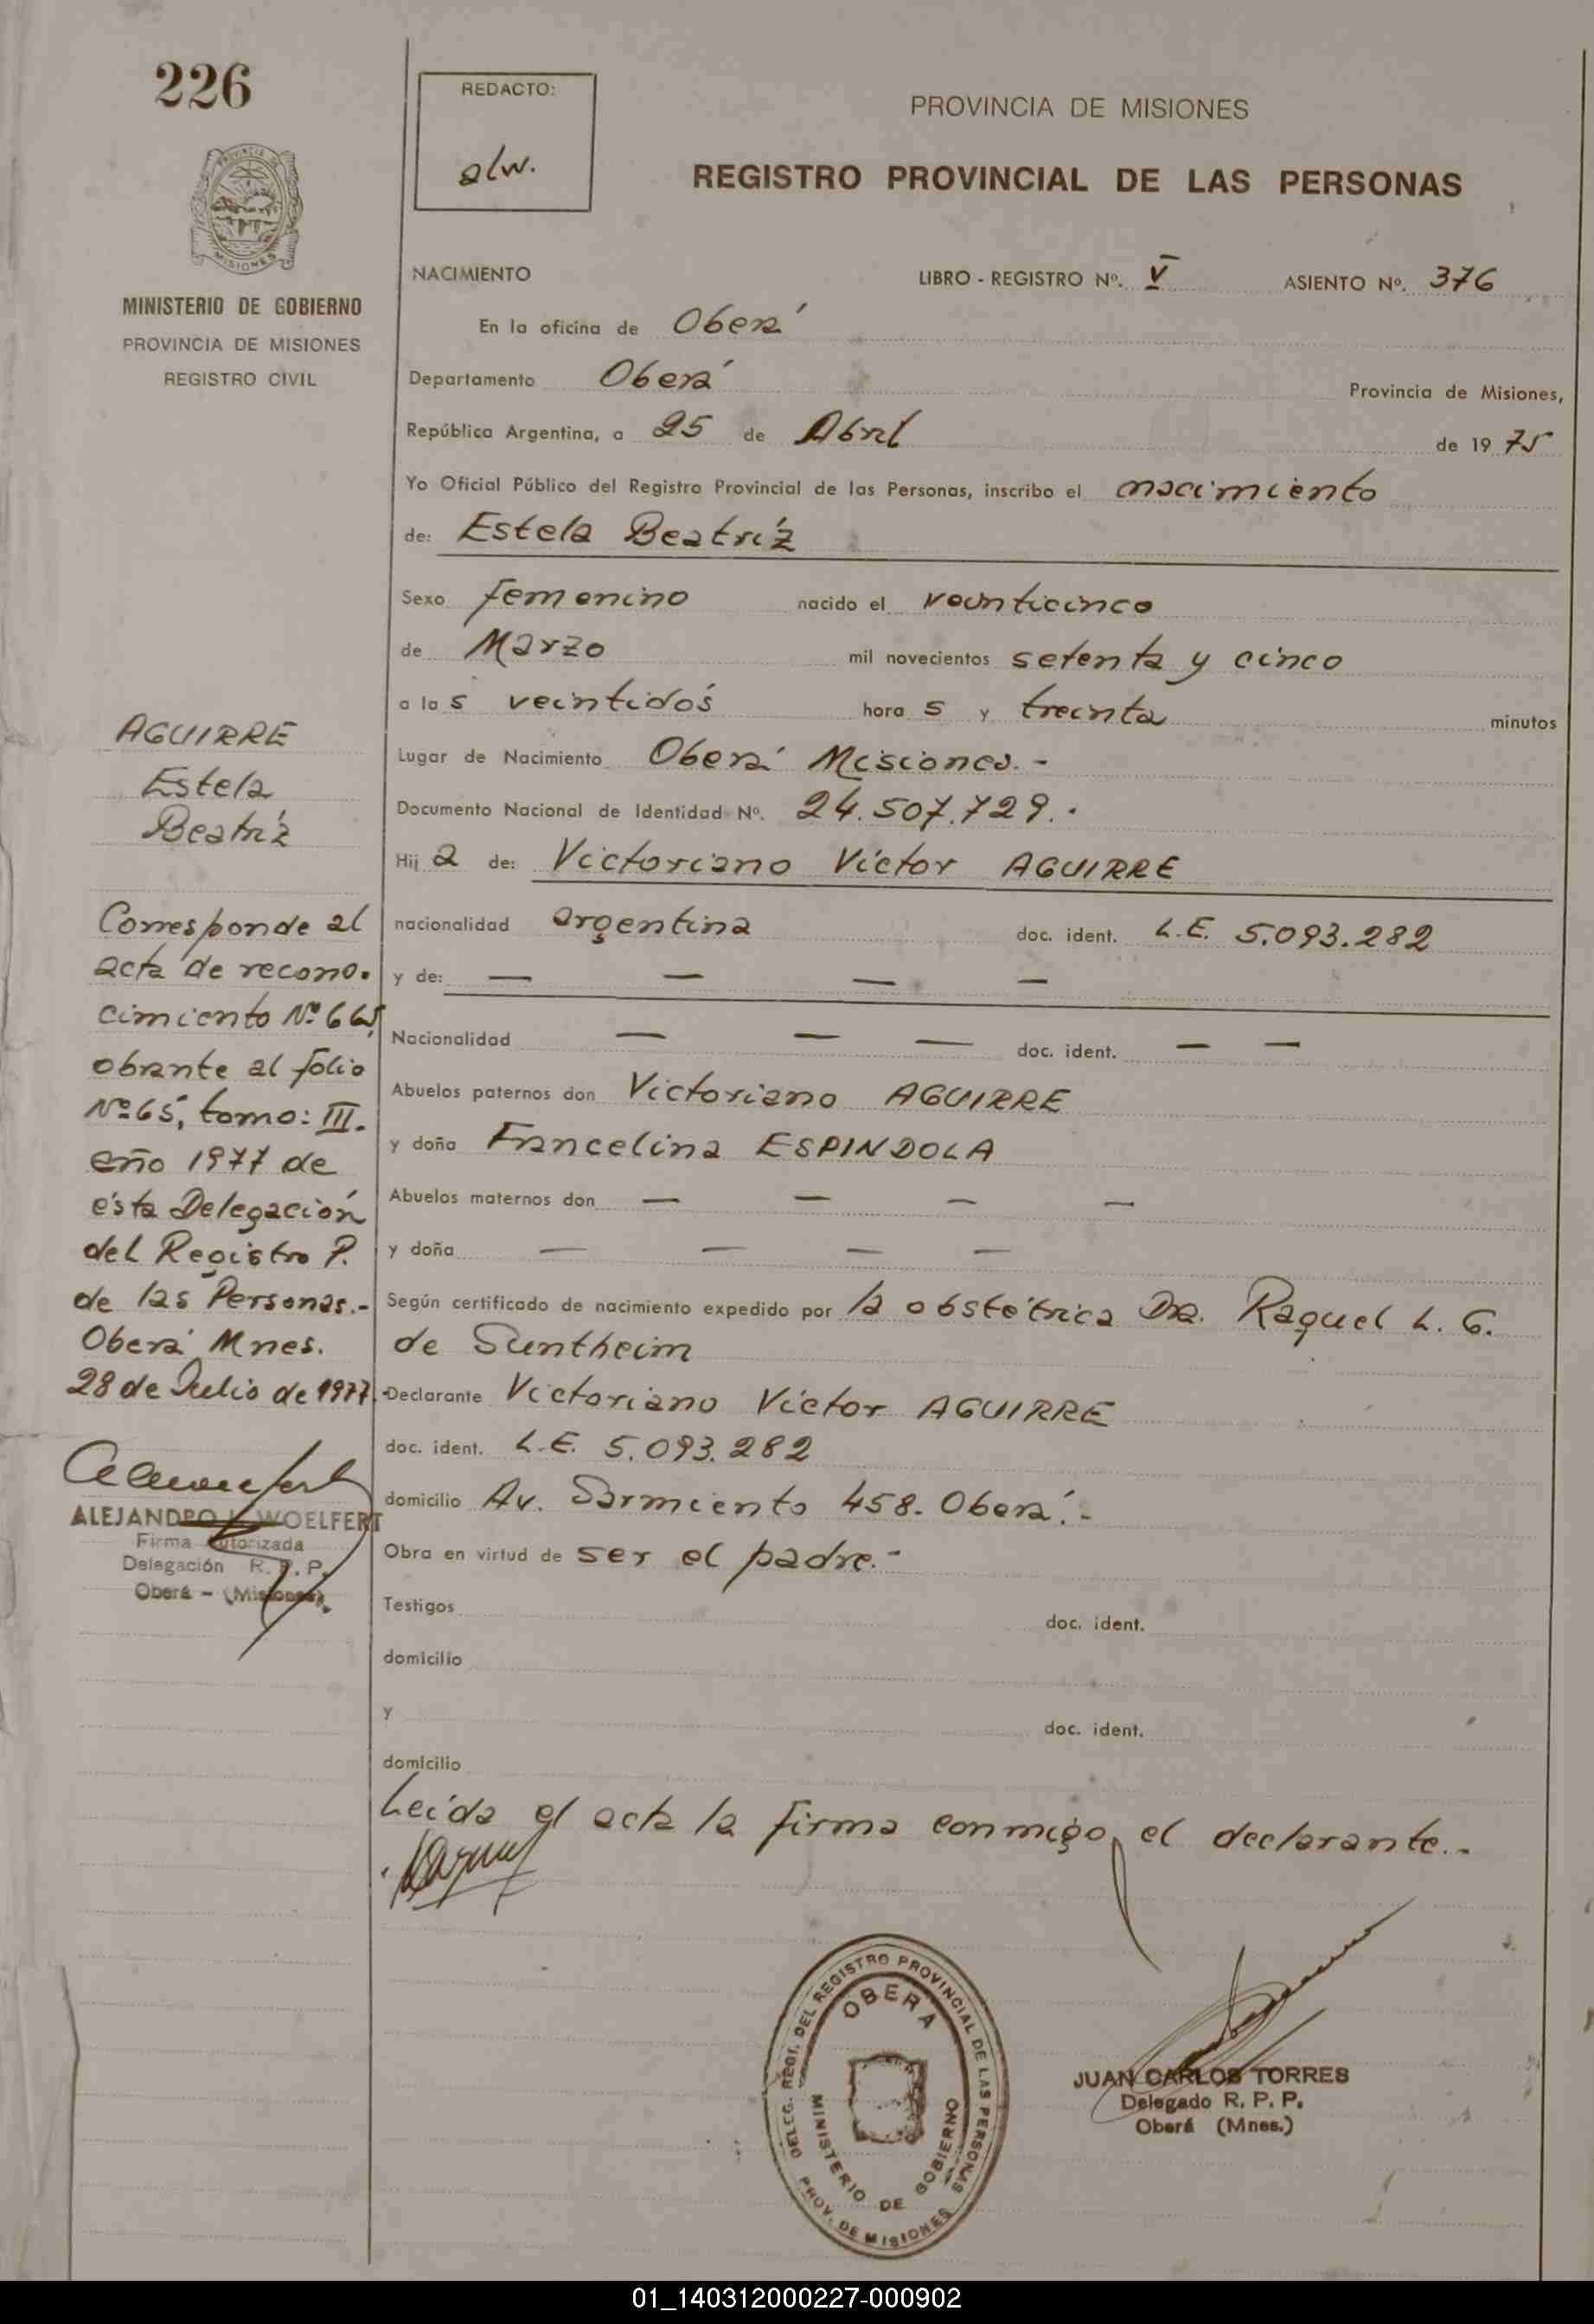 226
REDACTO:
alw.
PROVINCIA DE MISIONES
REGISTRO PROVINCIAL DE LAS PERSONAS
MISIONES
MINISTERIO DE GOBIERNO
PROVINCIA DE MISIONES
REGISTRO CIVIL
NACIMIENTO LIBRO - REGISTRO Nº. V ASIENTO Nº. 376
En la oficina de Oberá
Departamento Oberá Provincia de Misiones,
República Argentina, a 25 de Abril de 19 75
Yo Oficial Público del Registro Provincial de las Personas, inscribo el nacimiento
de: Estela Beatríz
Sexo femenino nacido el veinticinco
de Marzo mil novecientos setenta y cinco
a la s veintidós hora s y treinta minutos
Lugar de Nacimiento Oberá Misiones.-
Documento Nacional de Identidad Nº. 24.507.729.-
Hij a de: Victoriano Víctor AGUIRRE
nacionalidad argentina doc. ident. L.E. 5.093.282
y de: — — — —
Nacionalidad — — — doc. ident. — —
Abuelos paternos don Victoriano AGUIRRE
y doña Francelina ESPINDOLA
Abuelos maternos don — — — —
y doña — — — —
Según certificado de nacimiento expedido por la obstétrica Dra. Raquel L. G.
de Suntheim
Declarante Victoriano Víctor AGUIRRE
doc. ident. L.E. 5.093.282
domicilio Av. Sarmiento 458.- Oberá.-
Obra en virtud de ser el padre.-
Testigos doc. ident.
domicilio
y doc. ident.
domicilio
Leída el acta la firma conmigo el declarante.-
AGUIRRE
Estela
Beatríz
Corresponde al
acta de recono-
cimiento Nº 665,
obrante al folio
Nº 65, tomo: III.
año 1977 de
ésta Delegación
del Registro P.
de las Personas.-
Oberá Mnes.
28 de Julio de 1977.-
ALEJANDRO WOELFERT
Firma Autorizada
Delegación R. P. P.
Oberá - (Misiones).
DELEG. REGI. DEL REGISTRO PROVINCIAL DE LAS PERSONAS
OBERA
MINISTERIO DE GOBIERNO
PROV. DE MISIONES
JUAN CARLOS TORRES
Delegado R. P. P.
Oberá (Mnes.)
01_140312000227-000902